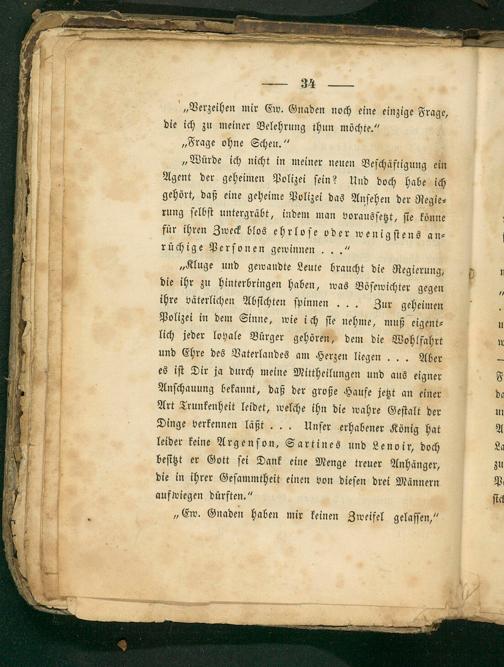 — 34 —
„Verzeihen mir Ew. Gnaden noch eine einzige Frage,
die ich zu meiner Belehrung thun möchte.“
„Frage ohne Scheu.“
„Würde ich nicht in meiner neuen Beschäftigung ein
Agent der geheimen Polizei sein? Und doch habe ich
gehört, daß eine geheime Polizei das Ansehen der Regie-
rung selbst untergräbt, indem man voraussetzt, sie könne
für ihren Zweck blos ehrlose oder wenigstens an-
rüchige Personen gewinnen . . .“
„Kluge und gewandte Leute braucht die Regierung,
die ihr zu hinterbringen haben, was Bösewichter gegen
ihre väterlichen Absichten spinnen . . . Zur geheimen
Polizei in dem Sinne, wie ich sie nehme, muß eigent-
lich jeder loyale Bürger gehören, dem die Wohlfahrt
und Ehre des Vaterlandes am Herzen liegen . . . Aber
es ist Dir ja durch meine Mittheilungen und aus eigner
Anschauung bekannt, daß der große Haufe jetzt an einer
Art Trunkenheit leidet, welche ihn die wahre Gestalt der
Dinge verkennen läßt . . . Unser erhabener König hat
leider keine Argenson, Sartines und Lenoir, doch
besitzt er Gott sei Dank eine Menge treuer Anhänger,
die in ihrer Gesammtheit einen von diesen drei Männern
aufwiegen dürften.“
„Ew. Gnaden haben mir keinen Zweifel gelassen,“